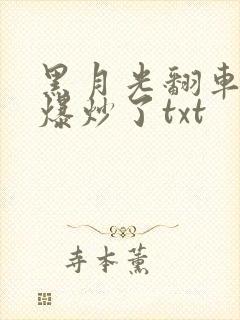 黑月光翻車
爆炒了txt
寺本薰